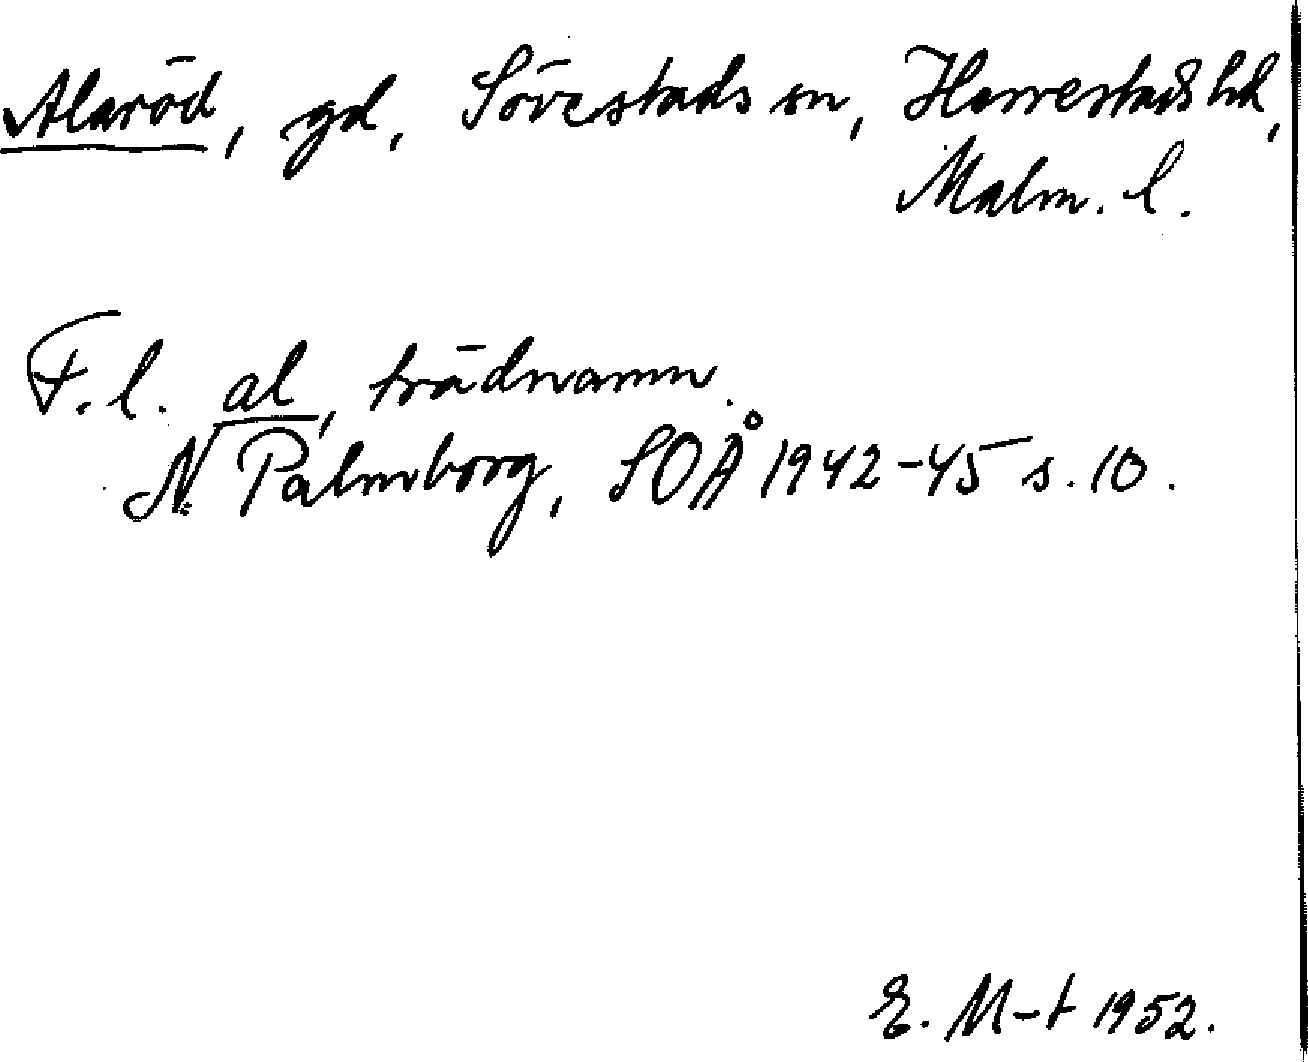 Alaröd, gd, Sövestads sn, Herrestads hd,
Malm. l.
F. l. al, trädnamn.
N. Palmborg, SOÅ 1942-45 s. 10.
E. M-t 1952.